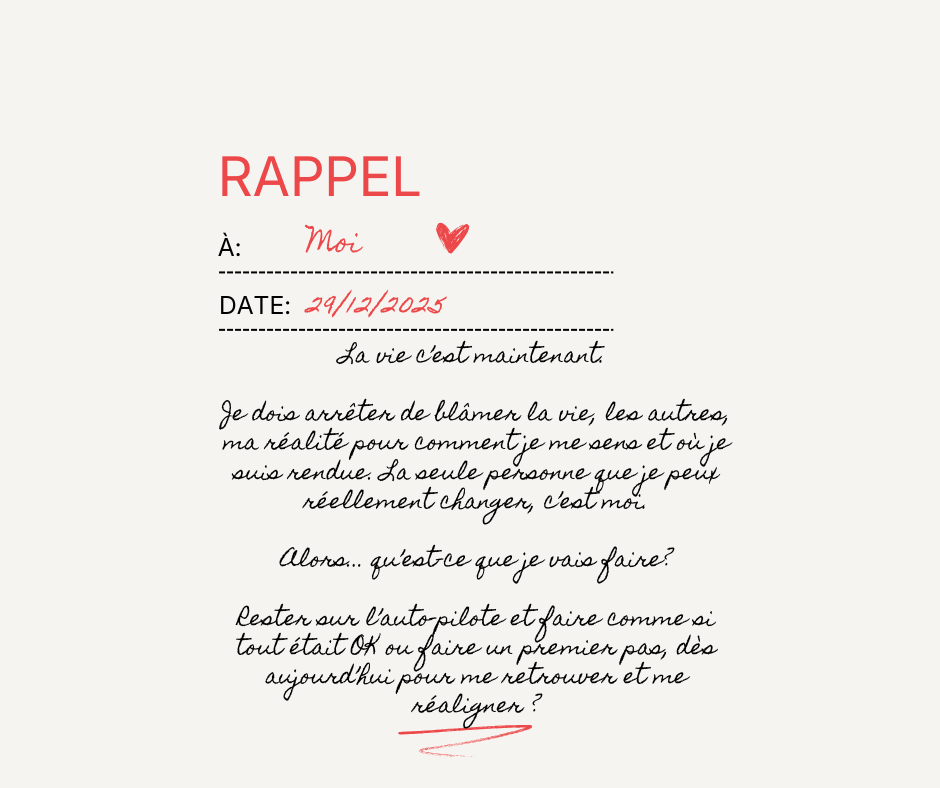 RAPPEL
À: Moi
DATE: 29/12/2025
La vie c'est maintenant.
Je dois arrêter de blâmer la vie, les autres,
ma réalité pour comment je me sens et où je
suis rendue. La seule personne que je peux
réellement changer, c'est moi.
Alors... qu'est-ce que je vais faire?
Rester sur l'auto-pilote et faire comme si
tout était OK ou faire un premier pas, dès
aujourd'hui pour me retrouver et me
réaligner ?